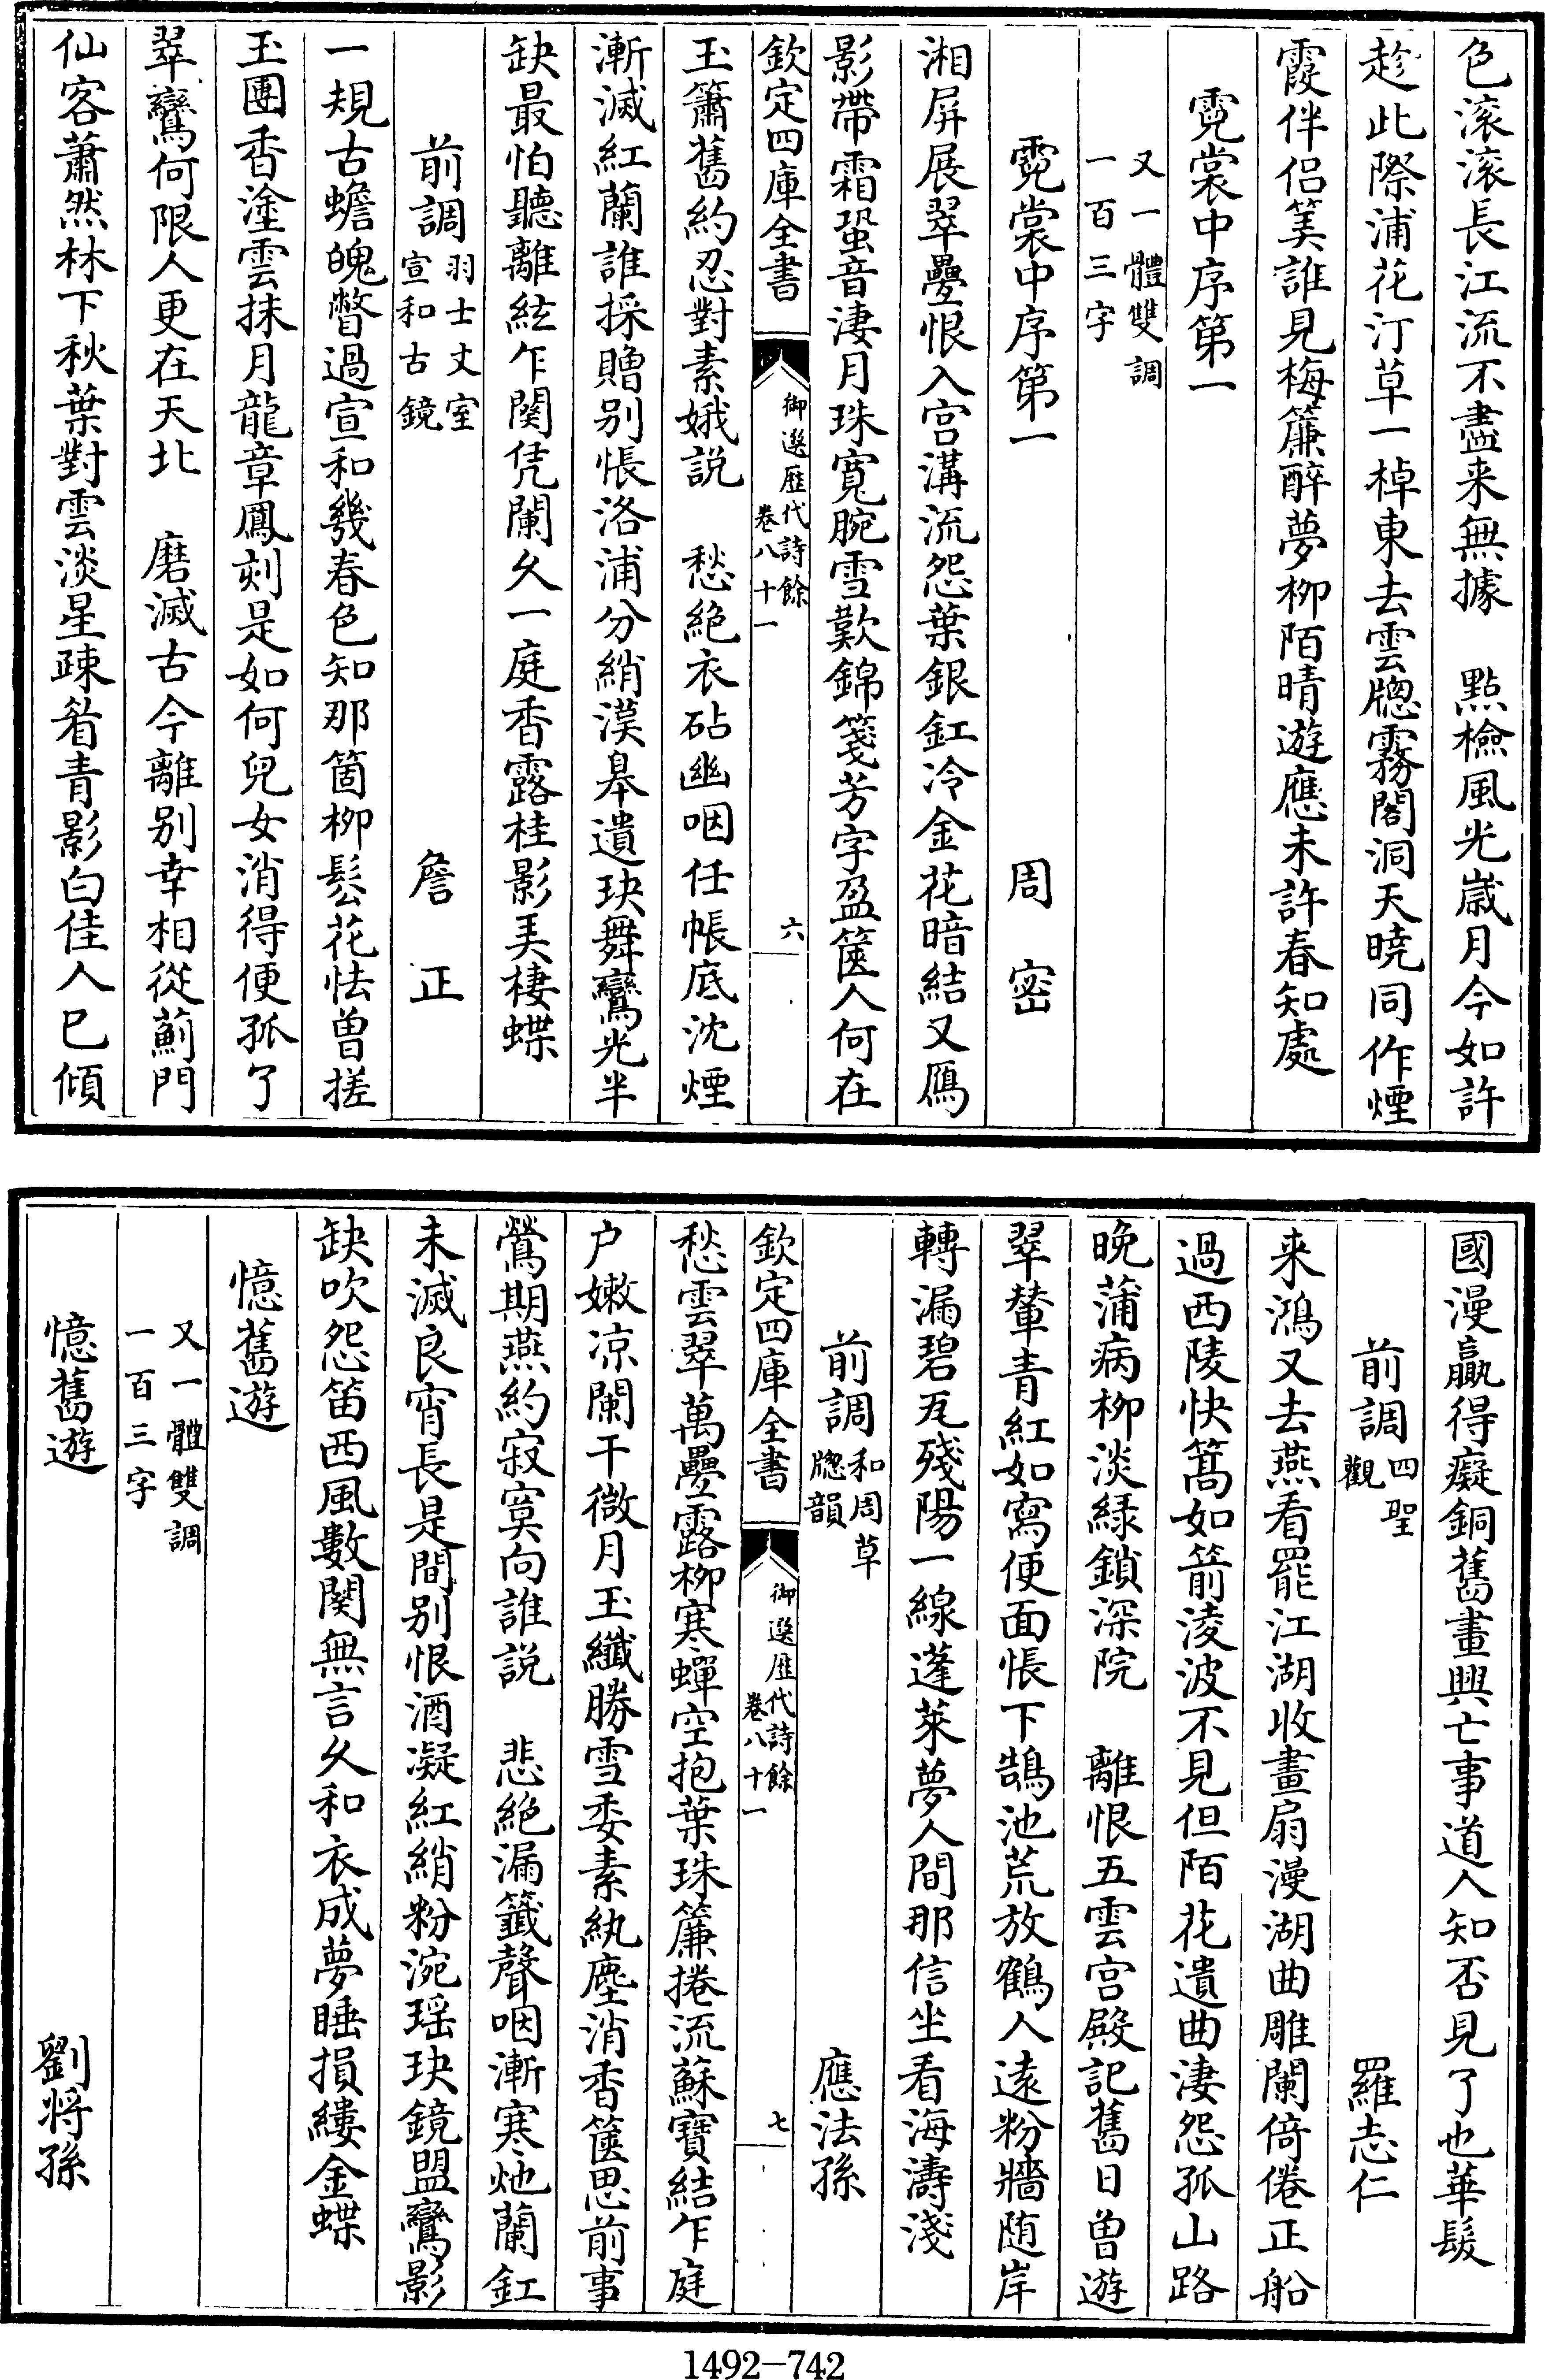 色滾滾長江流不盡来無據　點檢風光嵗月今如許
趁此際浦花汀草一棹東去雲牕霧閣洞天曉同作煙
霞伴侣笑誰見梅簾醉夢柳陌晴遊應未許春知處
霓裳中序第一
又一體雙調
一百三字
霓裳中序第一　周密
湘屏展翠疊恨入宫溝流怨葉銀釭冷金花暗結又鴈
影帶霜蛩音淒月珠寛腕雪歎錦箋芳字盈篋人何在
欽定四庫全書
御選歴代詩餘
卷八十一
六
玉簫舊約忍對素娥説　愁絶衣砧幽咽任帳底沈煙
漸滅紅蘭誰採贈别悵洛浦分綃漢皋遺玦舞鸞光半
缺最怕聽離絃乍闋凭闌久一庭香露桂影弄棲蝶
前調
羽士丈室
宣和古鏡
詹正
一規古蟾魄瞥過宣和幾春色知那箇柳鬆花怯曾搓
玉團香塗雲抹月龍章鳳刻是如何兒女消得便孤了
翠鸞何限人更在天北　磨滅古今離别幸相從薊門
仙客蕭然林下秋葉對雲淡星疎眷青影白佳人已傾
國漫贏得癡銅舊畫興亡事道人知否見了也華髮
前調
四聖
觀
羅志仁
来鴻又去燕看罷江湖收畫扇漫湖曲雕闌倚倦正船
過西陵快篙如箭淩波不見但陌花遺曲淒怨孤山路
晚蒲病柳淡緑鎖深院　離恨五雲宫殿記舊日曾遊
翠輦青紅如寫便面悵下鵠池荒放鶴人遠粉牆随岸
轉漏碧瓦殘陽一線蓬萊夢人間那信坐看海濤淺
前調
和周草
牕韻
應法孫
欽定四庫全書
御選歴代詩餘
卷八十一
七
愁雲翠萬疊露柳寒蟬空抱葉珠簾捲流蘇寶結乍庭
户嫩凉闌干微月玉纖勝雪委素紈塵消香篋思前事
鶯期燕約寂寞向誰説　悲絶漏籤聲咽漸寒灺蘭釭
未滅良宵長是間别恨酒凝紅綃粉涴瑶玦鏡盟鸞影
缺吹怨笛西風數闋無言久和衣成夢睡損縷金蝶
憶舊遊
又一體雙調
一百三字
憶舊遊　劉将孫
1492-742